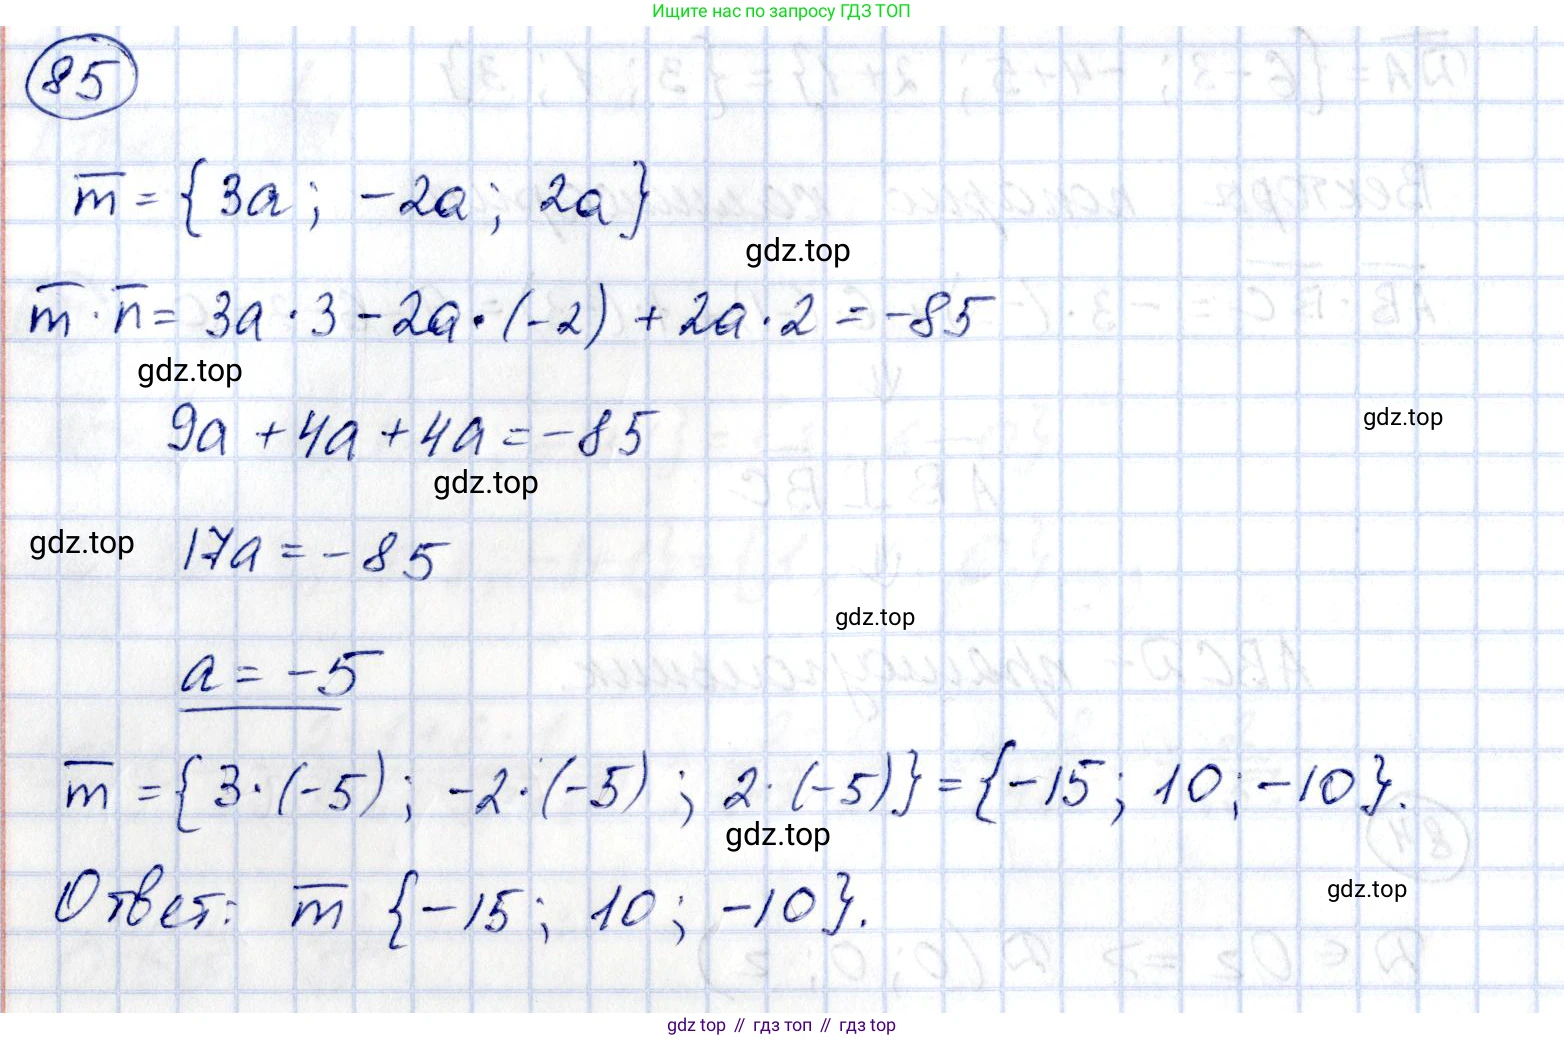 Ищите нас по запросу ГДЗ ТОП
85
m̅ = {3a; -2a; 2a}
gdz.top
m̅ · n̅ = 3a · 3 - 2a · (-2) + 2a · 2 = -85
gdz.top
gdz.top
9a + 4a + 4a = -85
gdz.top
gdz.top
17a = -85
gdz.top
a = -5
m̅ = {3 · (-5); -2 · (-5); 2 · (-5)} = {-15; 10; -10}.
gdz.top
gdz.top
Ответ: m̅ {-15; 10; -10}.
gdz top // гдз топ // гдз top